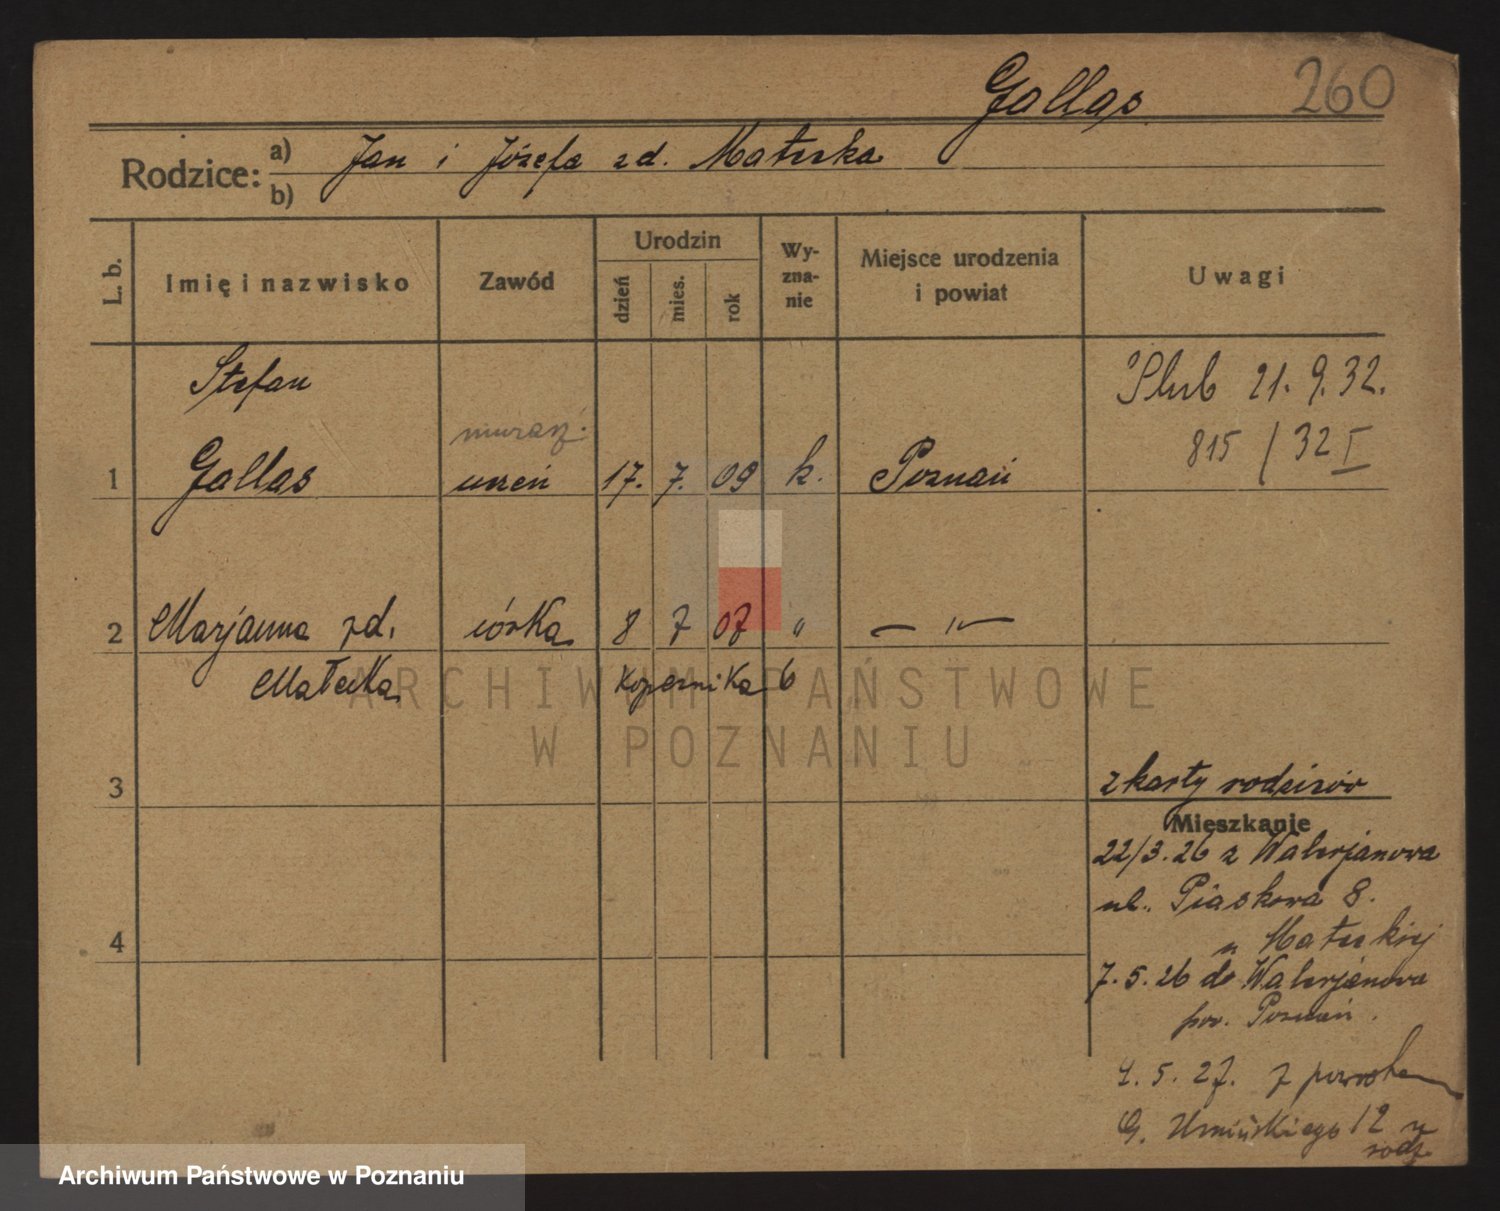 Gallas 260
Rodzice: a) Jan i Józefa zd. Małecka
b)
L. b. Imię i nazwisko Zawód Urodzin dzień mies. rok Wy-zna-nie Miejsce urodzenia i powiat Uwagi
Stefan
Ślub 21. 9. 32.
murarz.
815 / 32 I
1 Gallas uczeń 17. 7. 09 k. Poznań
2 Marjanna zd. córka 8 7 07 " — " —
Małecka Kopernika 6
ARCHIWUM PAŃSTWOWE
W POZNANIU
z karty rodziców
3
Mieszkanie
22/3. 26 z Walerjanowa
ul. Piaskowa 8.
u Małeckiej
4
7. 5. 26 do Walerjanowa
pow. Poznań.
4. 5. 27. z powrotem
G. Umińskiego 12 u
rodz.
Archiwum Państwowe w Poznaniu